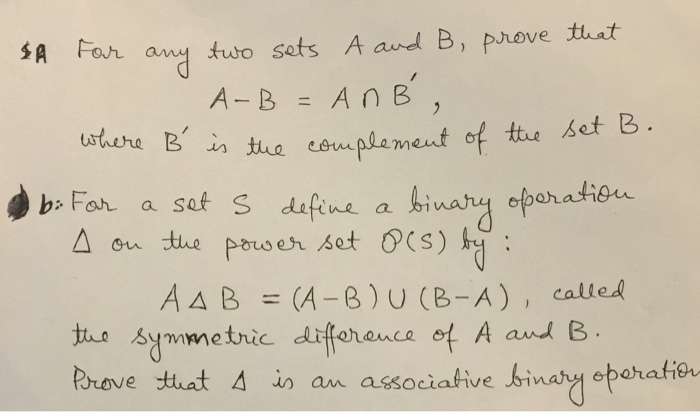 $A For any two sets A and B, prove that
A - B = A ∩ B′,
where B′ is the complement of the set B.
b: For a set S define a binary operation
Δ on the power set P(S) by :
A Δ B = (A-B) ∪ (B-A), called
the symmetric difference of A and B.
Prove that Δ is an associative binary operation